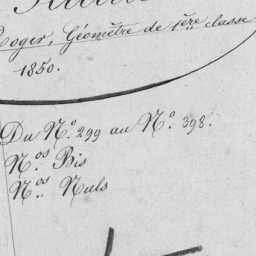 Roger, Géomètre de 1ère classe
1850.
Du N.° 299 au N.° 398.
N.os Bis
N.os Nuls